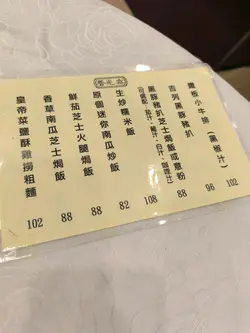 鐵板小牛排（黑椒汁） 102
吉列黑豚豬扒 96
黑豚豬扒芝士焗飯或意粉 88
茄汁 白汁
生炒糯米飯 108
原個迷你南瓜炒飯 82
鮮茄芝士火腿焗飯 88
香草南瓜芝士焗飯 88
皇帝菜鹽酥雞撈粗麵 102